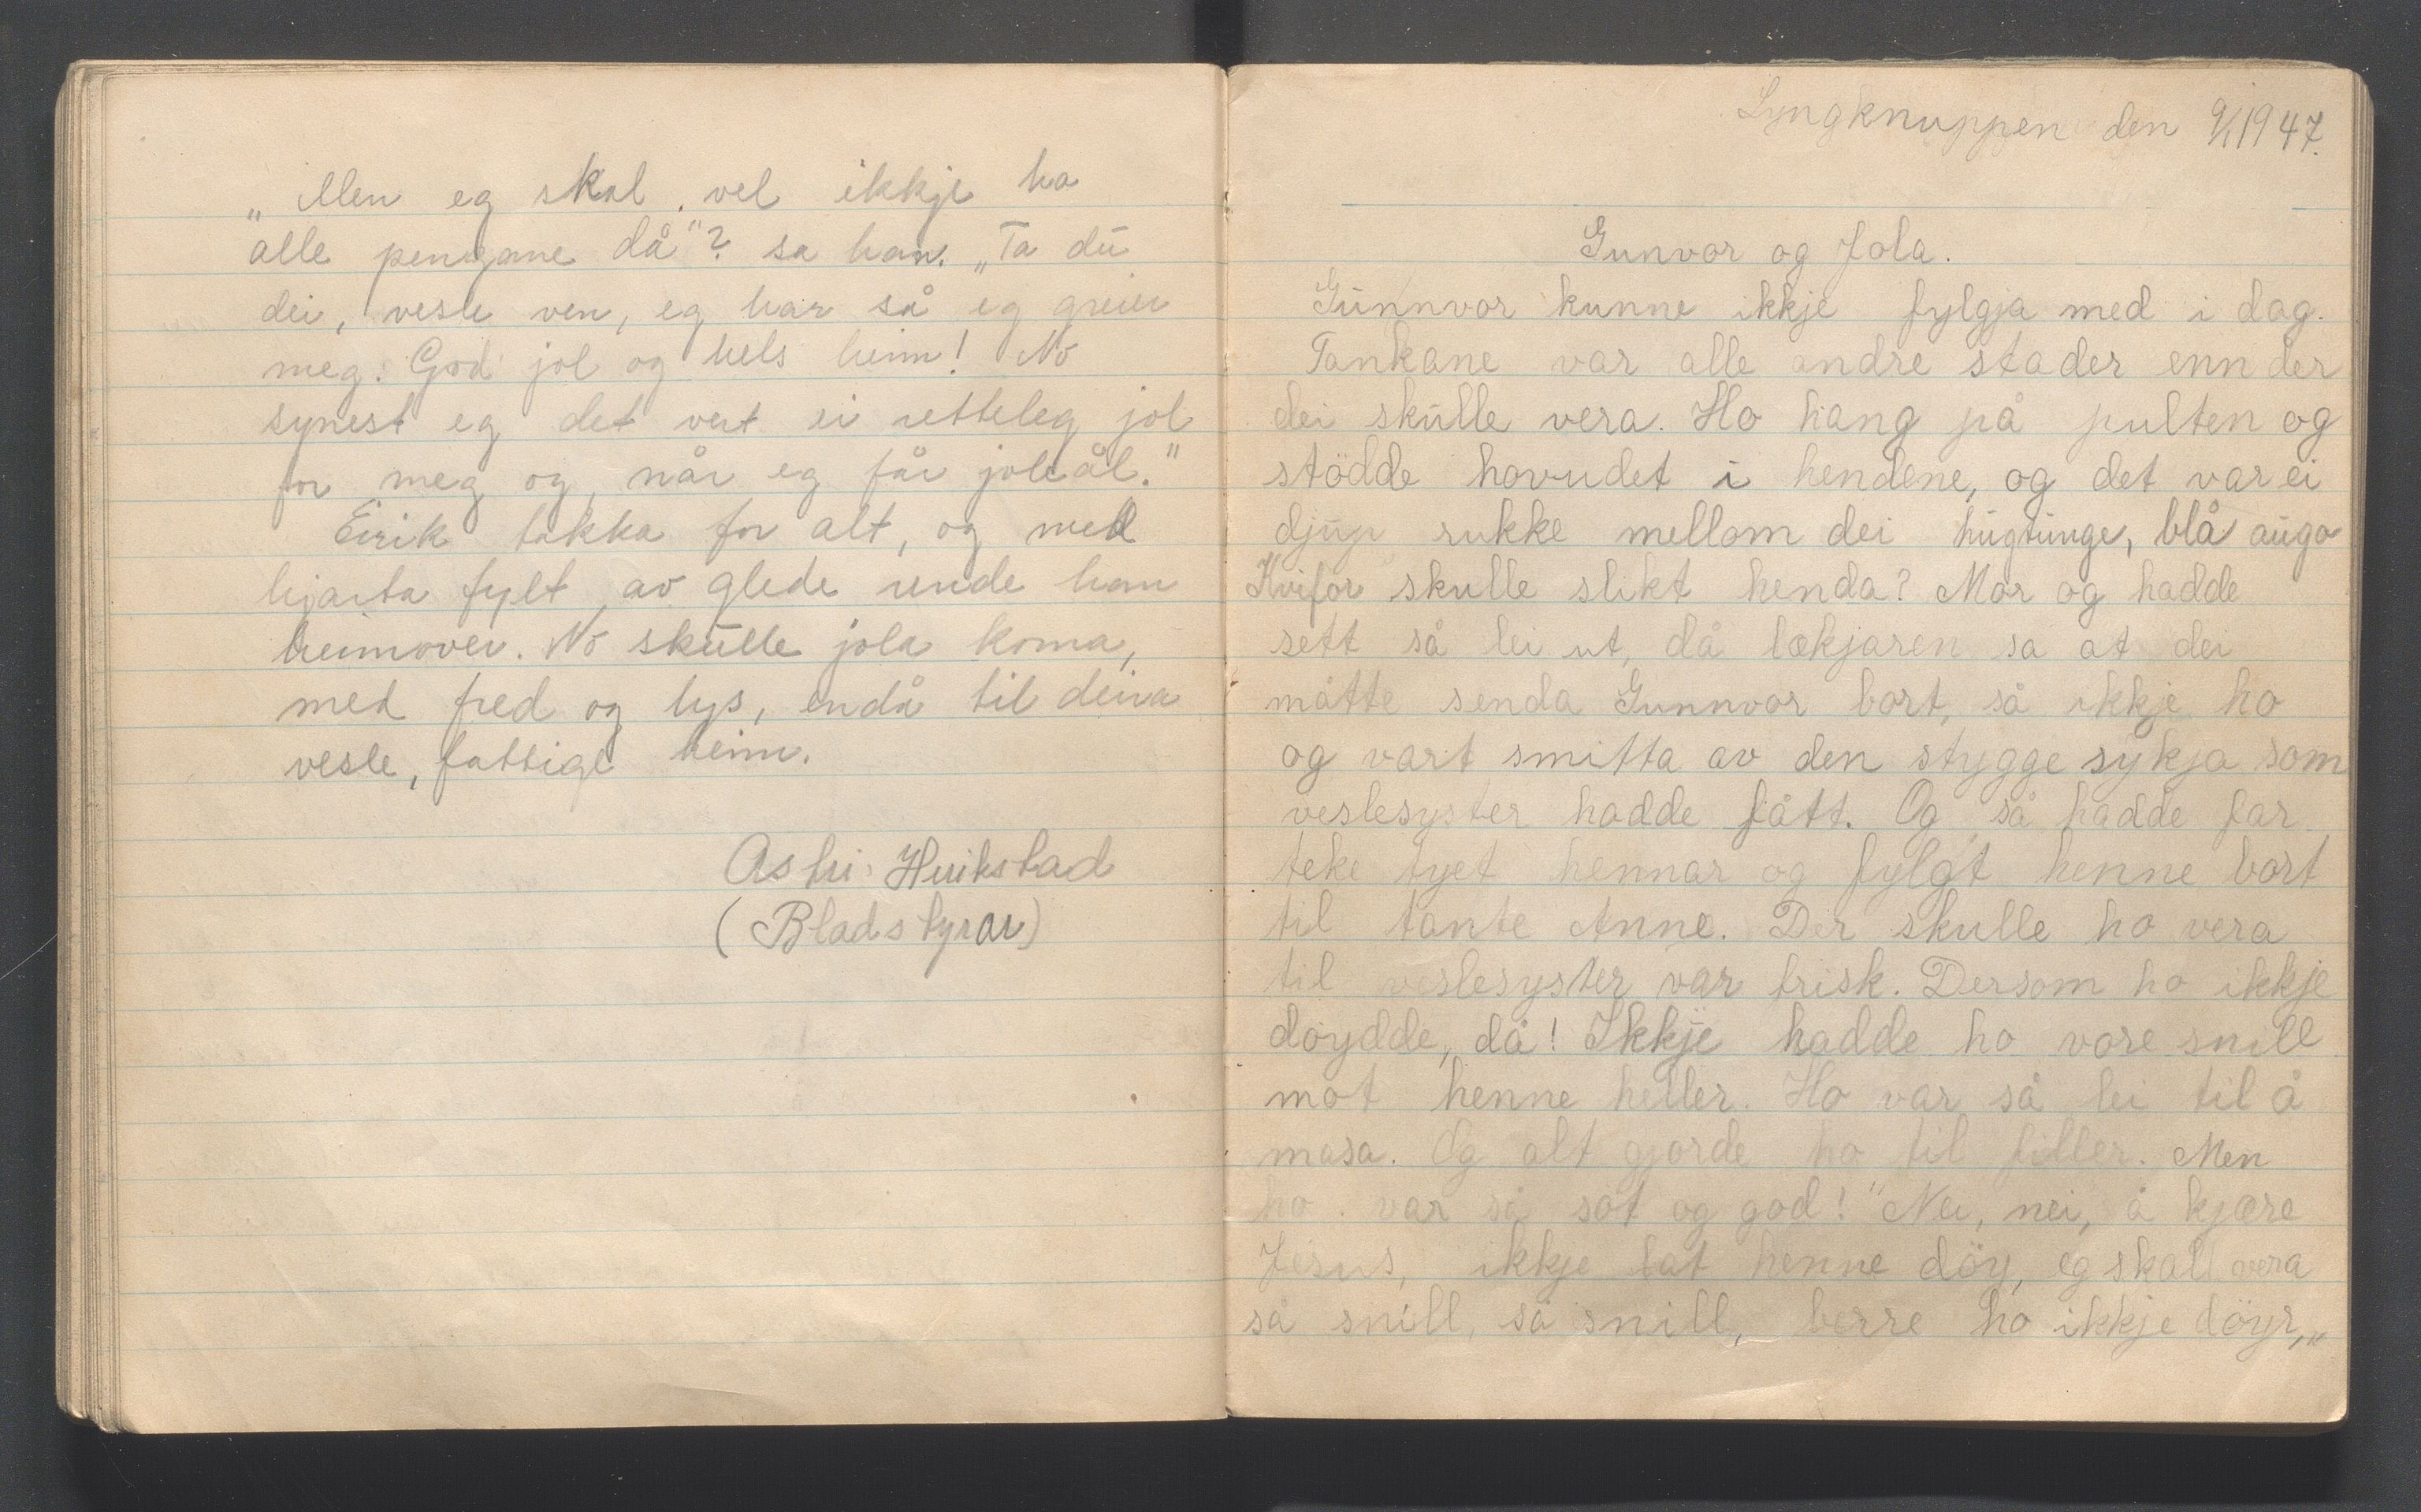 „Men eg skal vel ikkje ha
alle pengane då"? sa han. „Ta du
dei, vesle ven, eg har så eg greier
meg. God jol og hels heim! No
synest eg det vert ei retteleg jol
for meg og, når eg får joleål."
Eirik takka for alt, og med
hjarta fylt av glede rende han
heimover. No skulle jola koma,
med fred og lys, endå til deira
vesle, fattige heim.
(Bladstyrar)
Lyngknuppen den 9/1 1947.
Gunvor og Jola.
Gunnvor kunne ikkje fylgja med i dag.
Tankane var alle andre stader enn der
dei skulle vera. Ho hang på pulten og
stödde hovudet i hendene, og det var ei
djup rukke mellom dei hugtunge, blå augo
Kvifor skulle slikt henda? Mor og hadde
sett så lei ut, då lækjaren sa at dei
måtte senda Gunnvor bort, så ikkje ho
og vart smitta av den stygge sykja som
veslesyster hadde fått. Og så hadde far
teke tyet hennar og fylgt henne bort
til tante Anne. Der skulle ho vera
til veslesyster var frisk. Dersom ho ikkje
döydde, då! Ikkje hadde ho vore snill
mot henne heller. Ho var så lei til å
masa. Og alt gjorde ho til filler. Men
ho var så söt og god! "Nei, nei, å kjære
Jesus, ikkje lat henne döy, eg skal vera
så snill, så snill, berre ho ikkje döyr,"